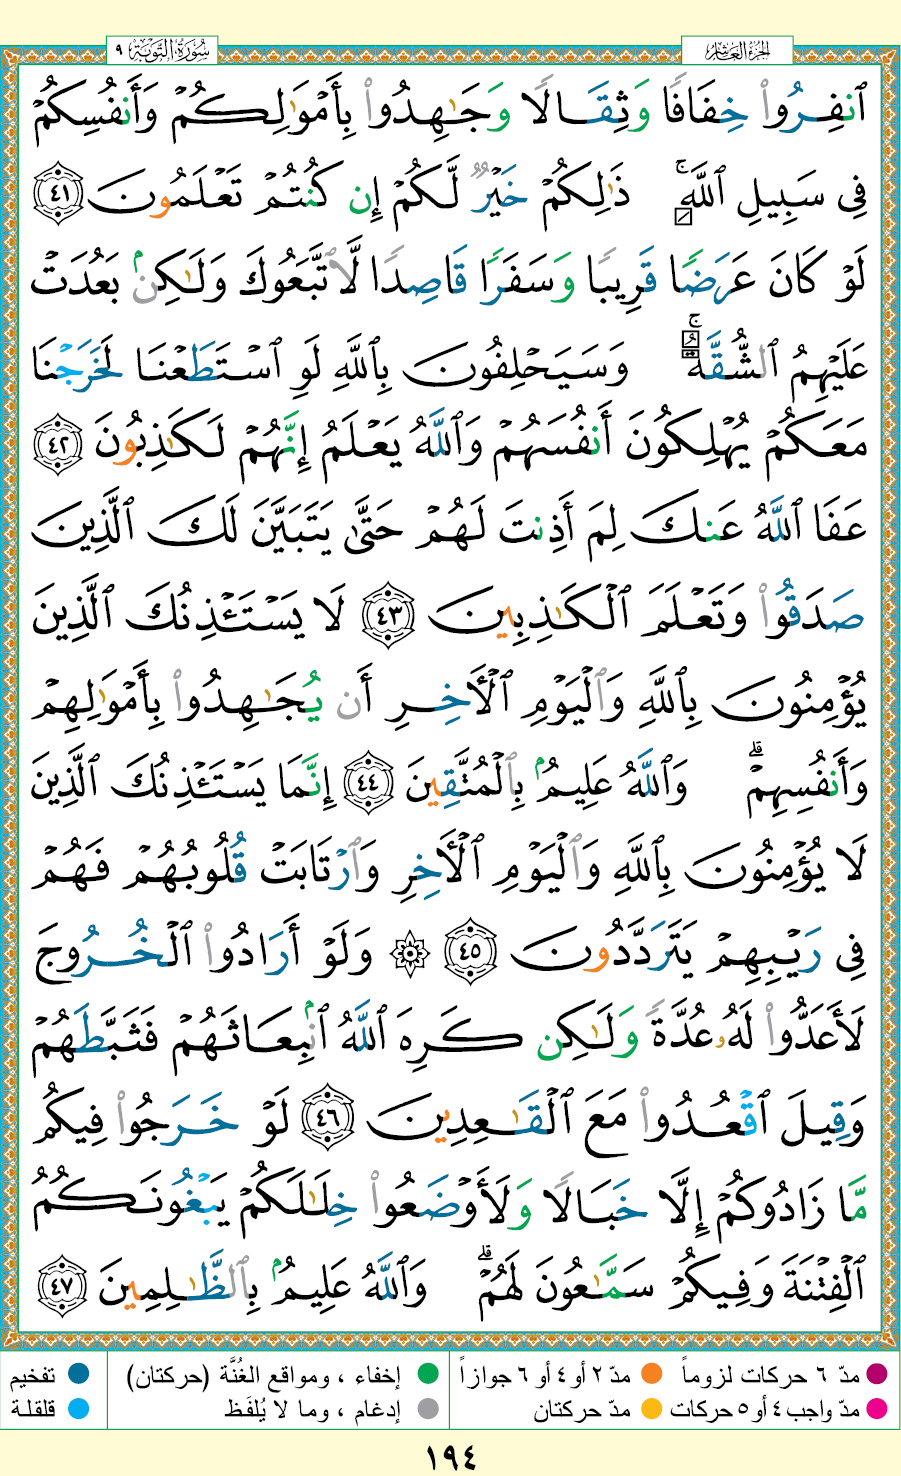 سُورَةُ التَّوْبَة ٩
الجُزءُ العَاشِرُ
ٱنفِرُوا۟ خِفَافًا وَثِقَالًا وَجَـٰهِدُوا۟ بِأَمْوَٰلِكُمْ وَأَنفُسِكُمْ
فِى سَبِيلِ ٱللَّهِ ۚ ذَٰلِكُمْ خَيْرٌ لَّكُمْ إِن كُنتُمْ تَعْلَمُونَ ٤١
لَوْ كَانَ عَرَضًا قَرِيبًا وَسَفَرًا قَاصِدًا لَّٱتَّبَعُوكَ وَلَـٰكِنۢ بَعُدَتْ
عَلَيْهِمُ ٱلشُّقَّةُ ۚ وَسَيَحْلِفُونَ بِٱللَّهِ لَوِ ٱسْتَطَعْنَا لَخَرَجْنَا
مَعَكُمْ يُهْلِكُونَ أَنفُسَهُمْ وَٱللَّهُ يَعْلَمُ إِنَّهُمْ لَكَـٰذِبُونَ ٤٢
عَفَا ٱللَّهُ عَنكَ لِمَ أَذِنتَ لَهُمْ حَتَّىٰ يَتَبَيَّنَ لَكَ ٱلَّذِينَ
صَدَقُوا۟ وَتَعْلَمَ ٱلْكَـٰذِبِينَ ٤٣ لَا يَسْتَـْٔذِنُكَ ٱلَّذِينَ
يُؤْمِنُونَ بِٱللَّهِ وَٱلْيَوْمِ ٱلْـَٔاخِرِ أَن يُجَـٰهِدُوا۟ بِأَمْوَٰلِهِمْ
وَأَنفُسِهِمْ ۗ وَٱللَّهُ عَلِيمٌۢ بِٱلْمُتَّقِينَ ٤٤ إِنَّمَا يَسْتَـْٔذِنُكَ ٱلَّذِينَ
لَا يُؤْمِنُونَ بِٱللَّهِ وَٱلْيَوْمِ ٱلْـَٔاخِرِ وَٱرْتَابَتْ قُلُوبُهُمْ فَهُمْ
فِى رَيْبِهِمْ يَتَرَدَّدُونَ ٤٥ ۞ وَلَوْ أَرَادُوا۟ ٱلْخُرُوجَ
لَأَعَدُّوا۟ لَهُۥ عُدَّةً وَلَـٰكِن كَرِهَ ٱللَّهُ ٱنۢبِعَاثَهُمْ فَثَبَّطَهُمْ
وَقِيلَ ٱقْعُدُوا۟ مَعَ ٱلْقَـٰعِدِينَ ٤٦ لَوْ خَرَجُوا۟ فِيكُم
مَّا زَادُوكُمْ إِلَّا خَبَالًا وَلَأَوْضَعُوا۟ خِلَـٰلَكُمْ يَبْغُونَكُمُ
ٱلْفِتْنَةَ وَفِيكُمْ سَمَّـٰعُونَ لَهُمْ ۗ وَٱللَّهُ عَلِيمٌۢ بِٱلظَّـٰلِمِينَ ٤٧
مدّ ٦ حركات لزوماً مدّ ٢ أو ٤ أو ٦ جوازاً إخفاء ، ومواقع الغُنَّة (حركتان) تفخيم
مدّ واجب ٤ أو ٥ حركات مدّ حركتان إدغام ، وما لا يُلفَظ قلقلة
١٩٤